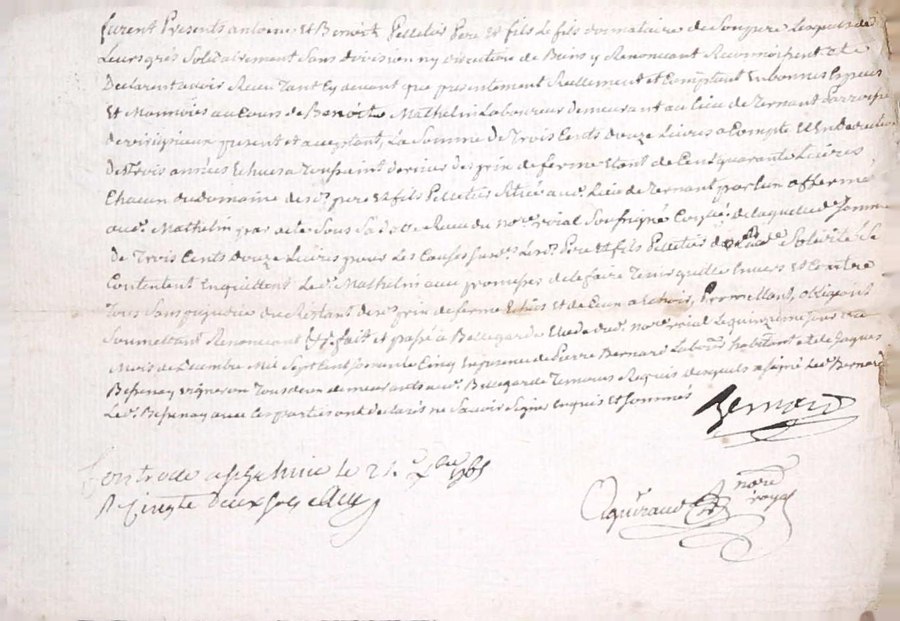 furent Presents antoine Et Benoist Pelletier Pere Et fils le fils emmataire de Son pere Lesquels de
Leurs grés Solidairement Sans division ny discution de Biens y Renoncant Reconnoissent et
Declarent avoir Recu Tant Cy devant que presentement Reellement et Comptant En bonnes Especes
Et Monnoies au Cours de Benoit Mathelin Laboureur demeurant au lieu de Ternant Parroisse
present et acceptant, La Somme de Trois Cents douze Livres a Compte Et En Deduction
Des Trois années Echues a Toussaint dernier des prix de ferme Etant de Cent quarante Livres
Chacun du domaine des.d. pere Et fils Pelletier Situé aud. Lieu de Ternant par Eux affermé
aud. Mathelin par acte Sous Sa datte Recu du no.re roial Soussigné de laquelle de. Somme
De Trois Cents Douze Livres pour Les Causes Sus.es Les.d. Pere Et fils Pelletier Solidité Se
Contentent En quittent Le.d. Mathelin avec promesses de le faire Tenir quitte Envers Et Contre
Tous Sans prejudice du Restant des.d. prix de ferme Echus Et de Ceux a Echoir, Promettant, obligeant
Soumettant Renoncant &.a fait et passé a Bellegarde Etude dud. no.re roial Le quinzieme Jour du
Mois de Decembre Mil Sept Cent Soixante Cinq En presence de Pierre Bernard Labour.r habitant et de Jaques
Bessenay vigneron Tous deux demeurants aud. Bellegarde Temoins Requis desquels a signé Le.d. Bernard
Le.d. Bessenay avec les parties ont declarés ne Savoir Signer Enquis Et Sommés
Bernard
Controllé le 21 Xbre 1765
R Cinqte deux sols
nore
royal